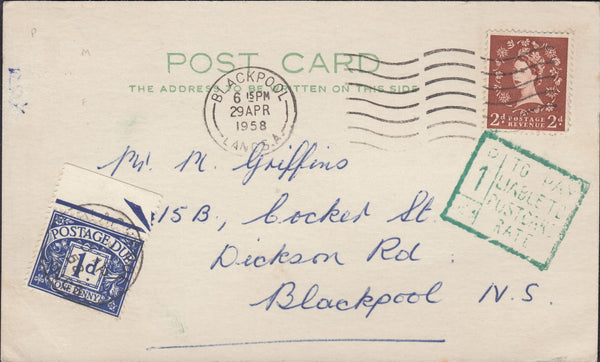 POST CARD
THE ADDRESS TO BE WRITTEN ON THIS SIDE
BLACKPOOL
6 15 PM
29 APR
1958
LANCS. A.
2d POSTAGE REVENUE 2d
TO PAY
1
LIABLE TO
POSTCARD
RATE
Mr. M. Griffins
15B, Cocker St.
Dickson Rd.
Blackpool N.S.
POSTAGE DUE
1d
ONE PENNY